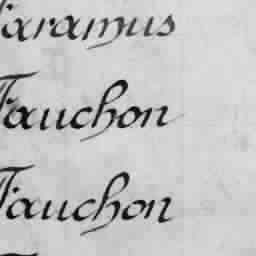 Faramus
Fauchon
Fauchon